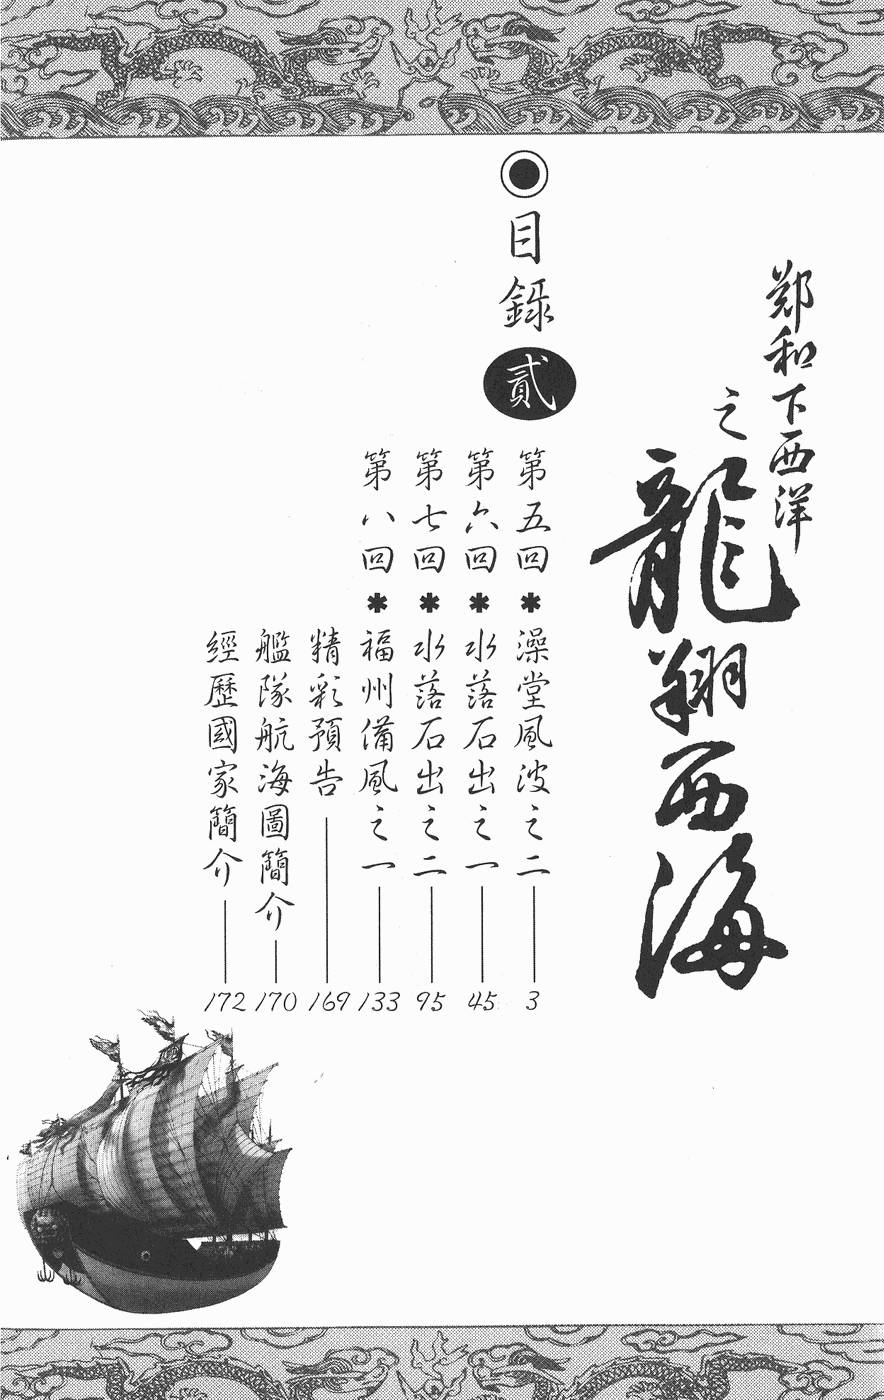 鄭和下西洋
之
龍翔西海
目錄
貳
第五回＊澡堂風波之二 3
第六回＊水落石出之一 45
第七回＊水落石出之二 95
第八回＊福州備風之一 133
精彩預告 169
艦隊航海圖簡介 170
經歷國家簡介 172